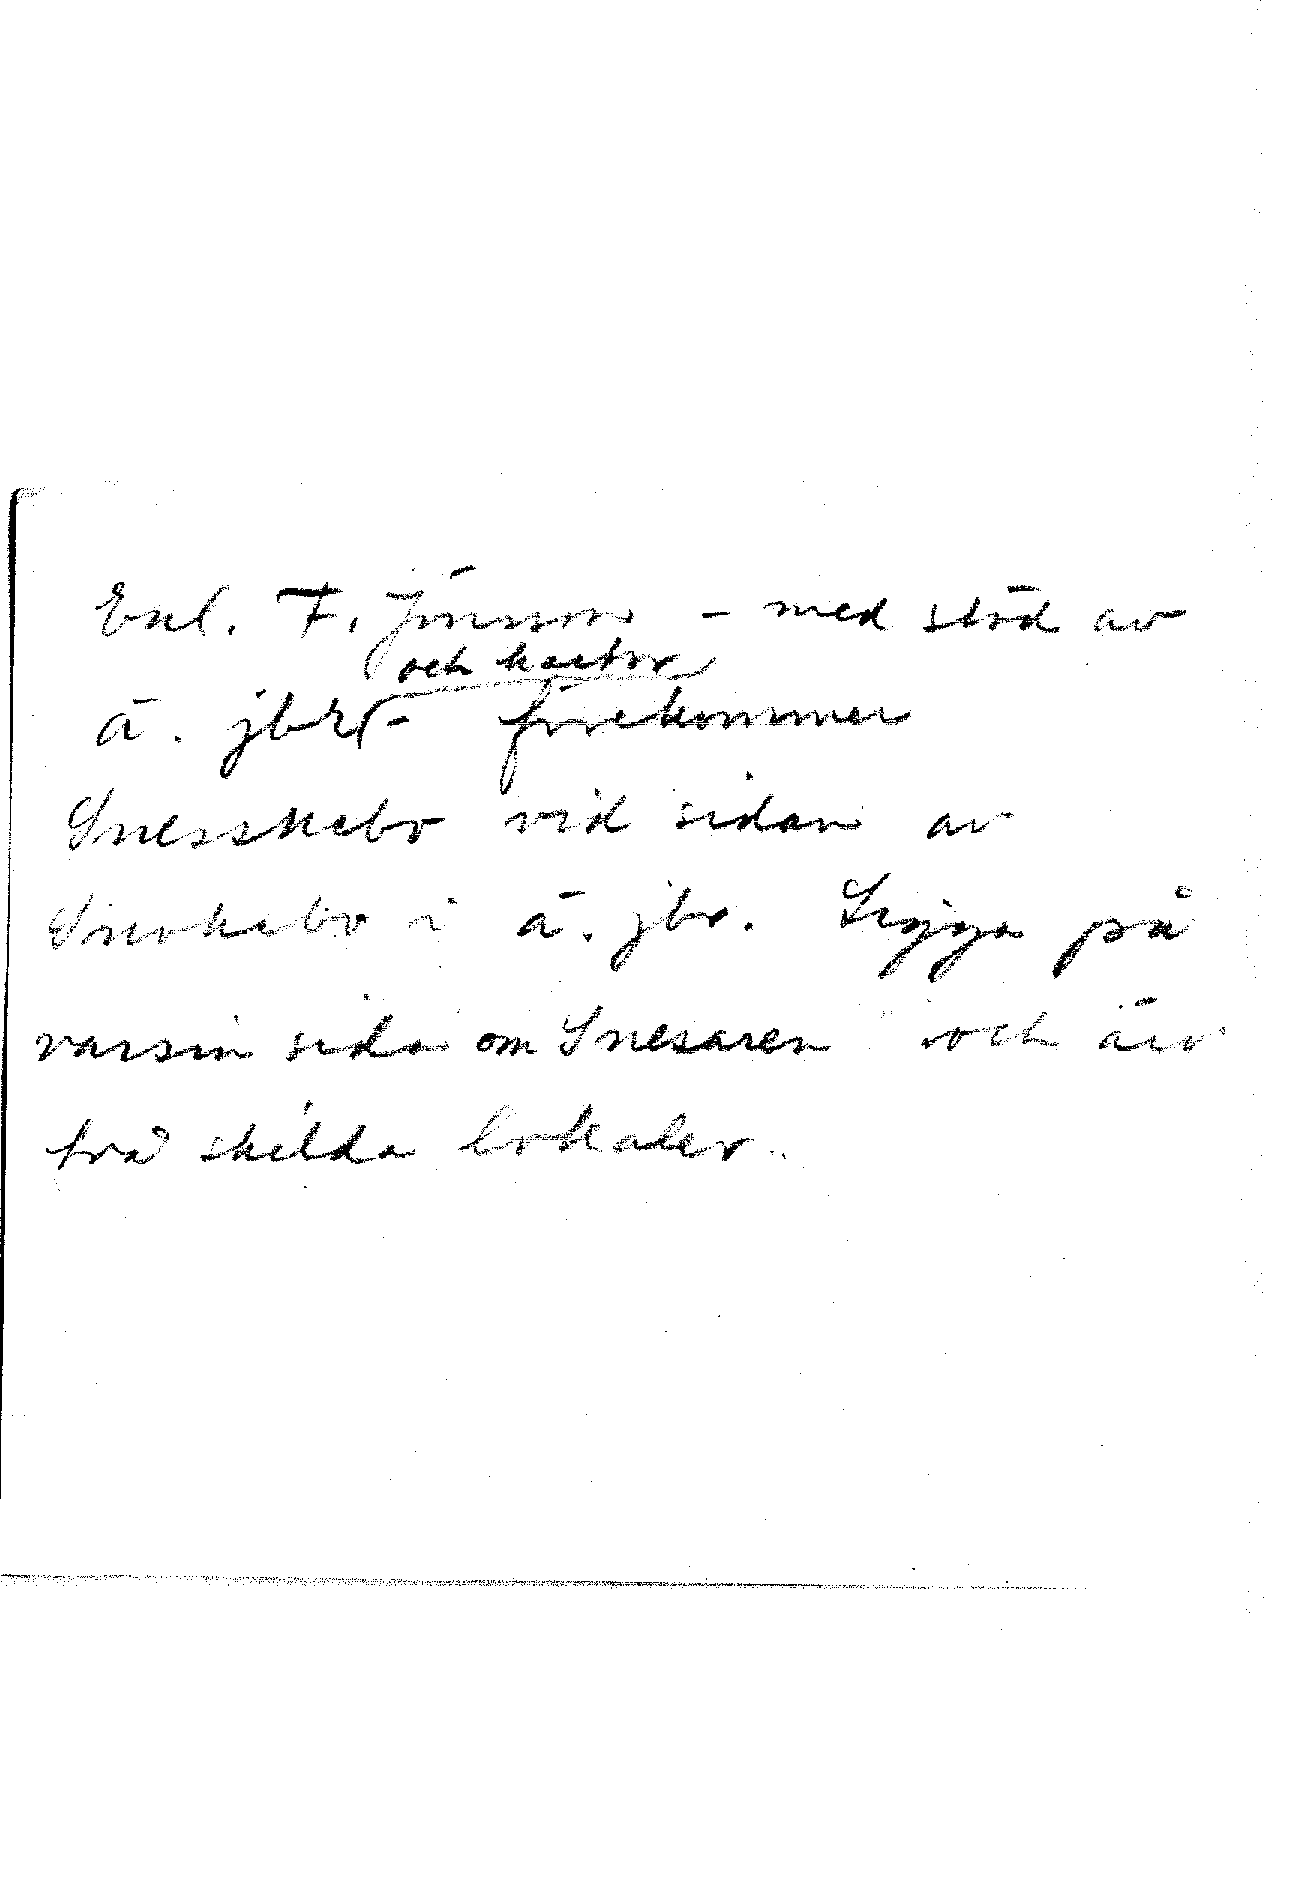 Enl. F. Jönsson – med stöd av
och kartor
ä. jbr – förekommer
Snesskebo vid sidan av
Snokebo i ä. jbr. Ligga på
varsin sida om Snesaren och är
två skilda lokaler.